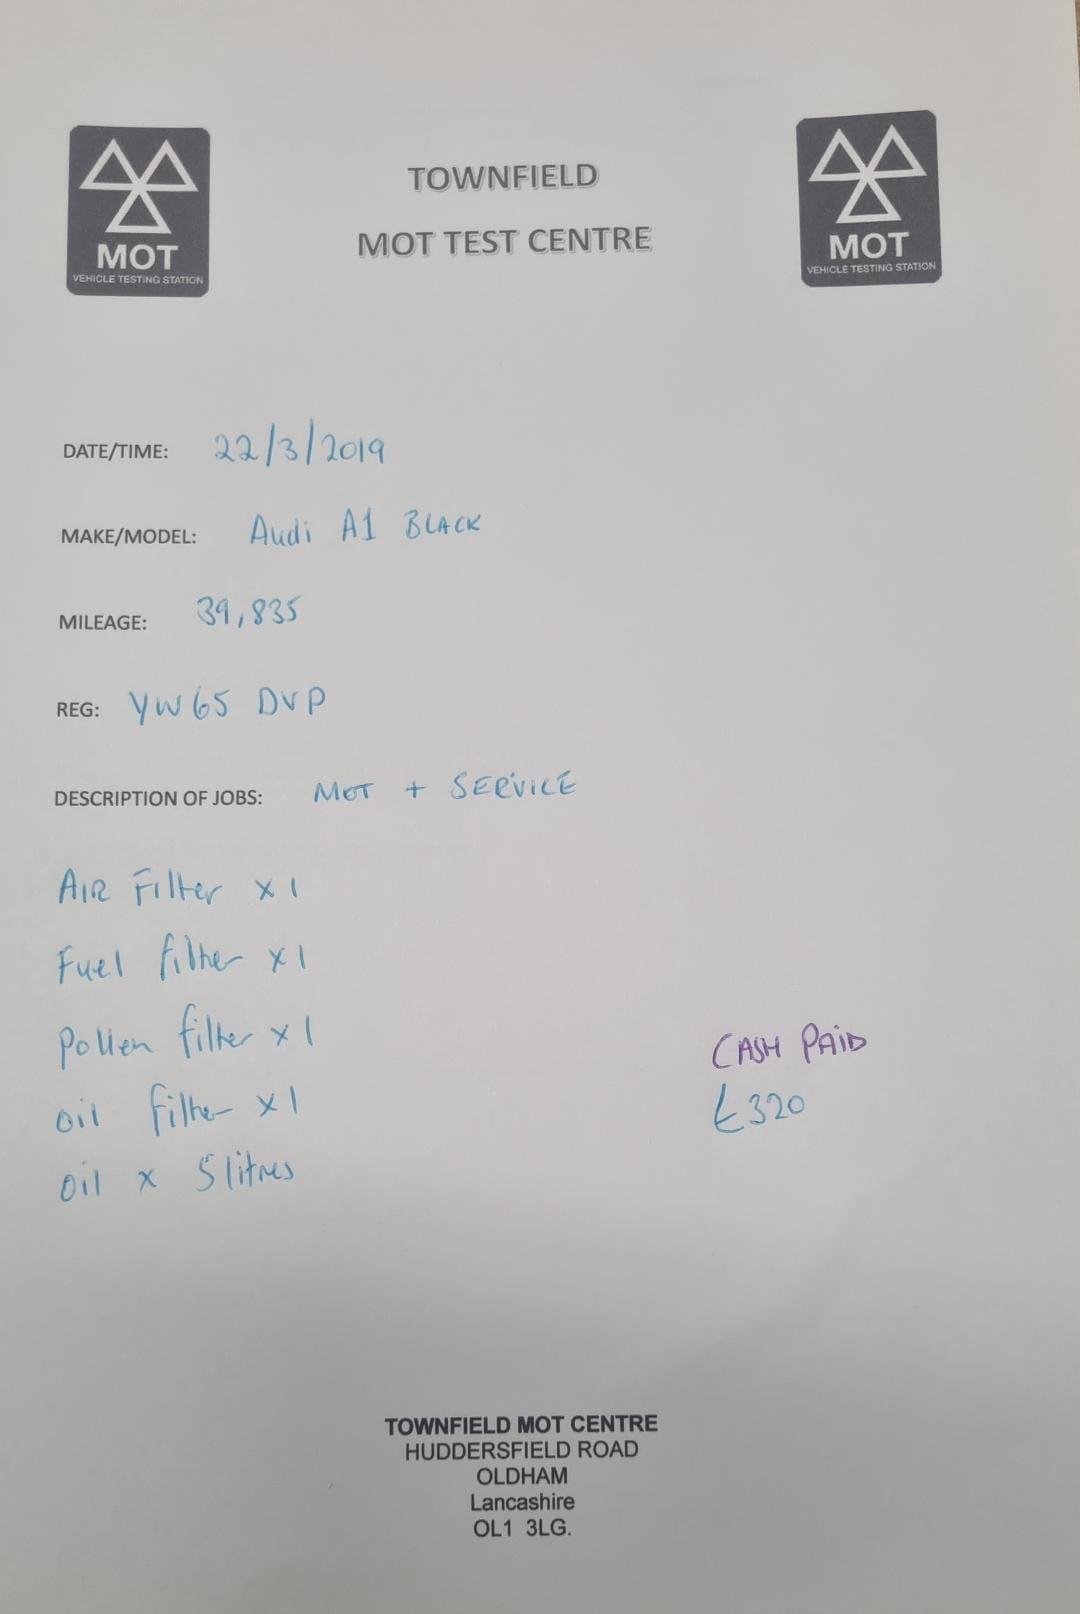 MOT
VEHICLE TESTING STATION
TOWNFIELD
MOT TEST CENTRE
MOT
VEHICLE TESTING STATION
DATE/TIME: 22/3/2019
MAKE/MODEL: Audi A1 BLACK
MILEAGE: 39,835
REG: YW65 DVP
DESCRIPTION OF JOBS: MOT + SERVICE
AIR Filter x 1
Fuel filter x 1
Pollen filter x 1
oil filter x 1
oil x 5 litres
CASH PAID
£320
TOWNFIELD MOT CENTRE
HUDDERSFIELD ROAD
OLDHAM
Lancashire
OL1 3LG.